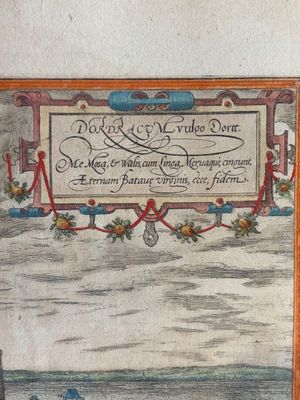 DORDRACVM vulgo Dortt.
Me Mosa, & Walis, cum Linga, Meruaque cingunt,
Æternam Batauæ virginis, ecce, fidem.